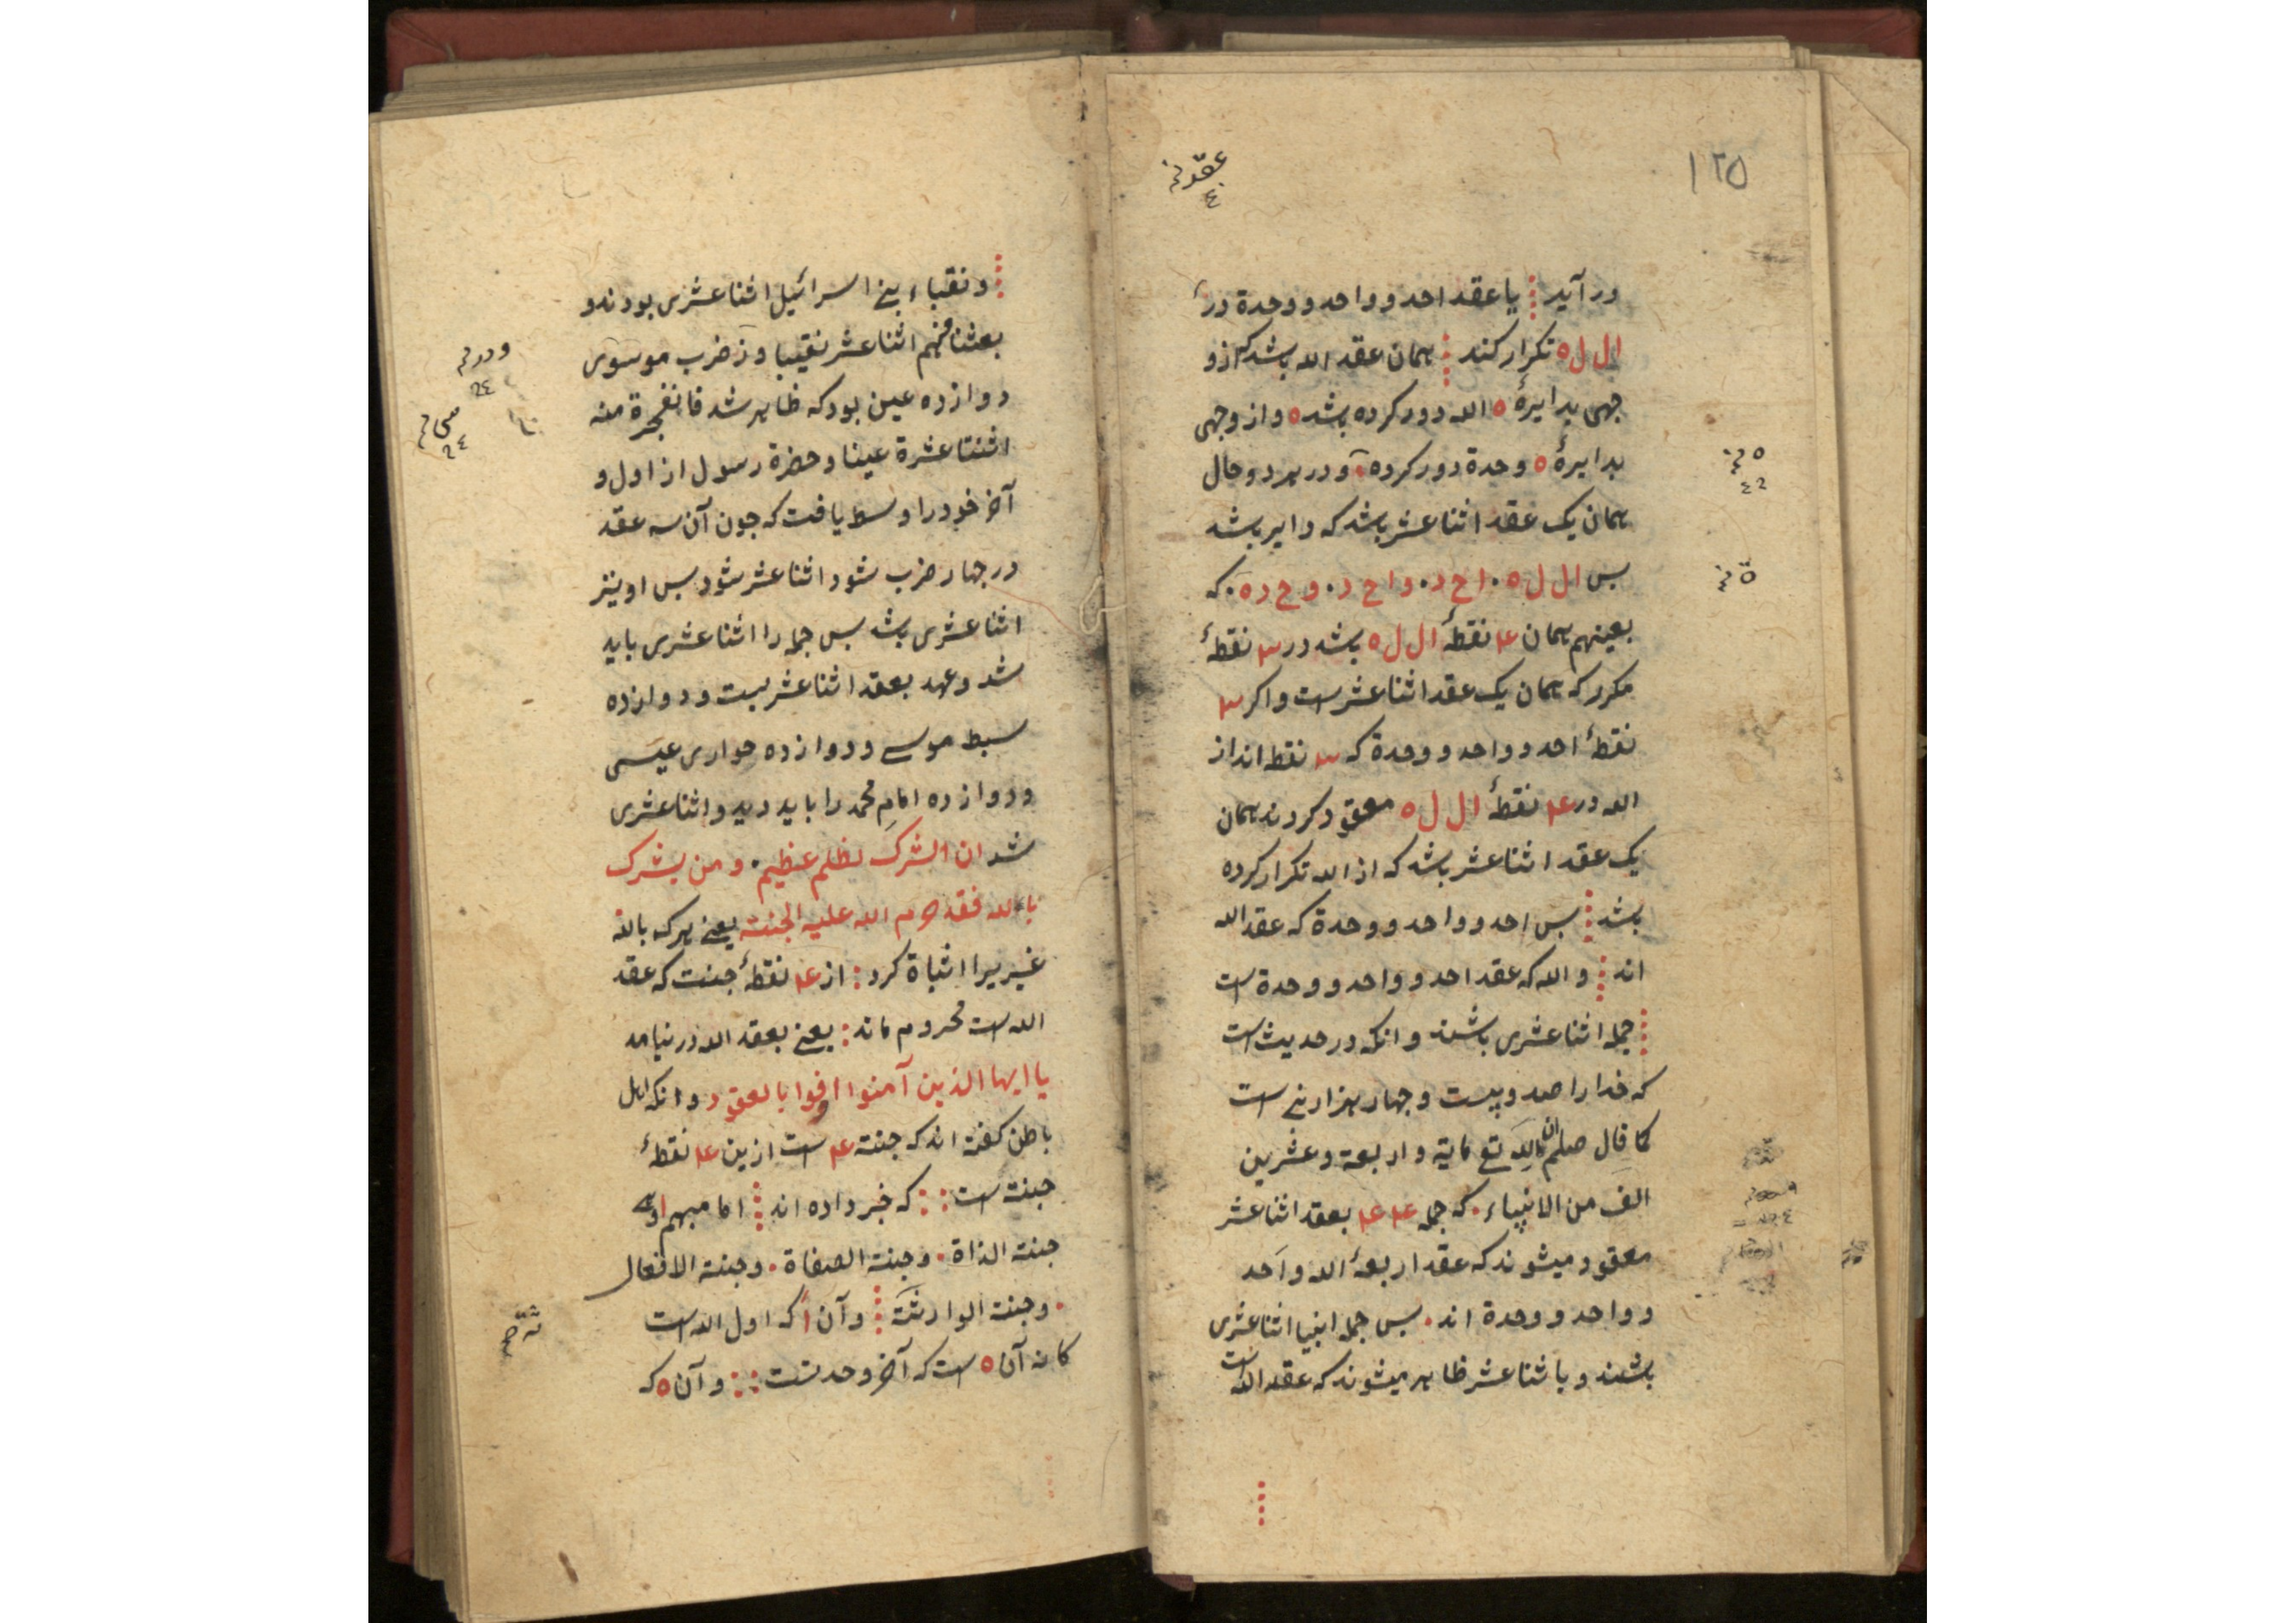 ١٢٥
در آید یا عقد احد و واحد و وحدة در
ال ل ه تکرار کند همان عقد الله باشد که از و
جهی بدایرهٔ ه الله دور کرده باشد ه و از وجهی
بدایرهٔ ه وحدة دور کرده و در هر دو حال
همان یک عقد اثنا عشر باشد که دایر باشد
بس ال ل ه . اح د . و اح د . وح د ه . که
بعینهم همان ۴ نقطهٔ ال ل ه باشد در ۳ نقطهٔ
مکرر که همان یک عقد اثنا عشر است و اکر ۳
نقطهٔ احد و واحد و وحدة که ۳ نقطه اند از
الله در ۴ نقطهٔ ال ل ه معقود کردند همان
یک عقد اثنا عشر باشد که از الله تکرار کرده
باشد بس احد و واحد و وحدة که عقد الله
اند و الله که عقد احد و واحد و وحدة است
جمله اثنا عشری باشند و انکه در حدیث است
که خدا را صد و بیست و جهار هزار نبی است
کما قال صلعم ان لله تع مایة و اربعة و عشرین
الف من الانبیاء . که جمله ۴ ۴ بعقد اثنا عشر
معقود میشوند که عقد اربعهٔ الله و احد
و واحد و وحدة اند . بس جمله انبیا اثنا عشری
باشند و با ثنا عشر ظاهر میشوند که عقد الله است
و نقباء بنی اسرائیل اثنا عشری بودند و
بعثنا منهم اثنا عشر نقیبا و ز ضرب موسوی
دوازده عین بود که ظاهر شد فانفجرة منه
اثنتا عشرة عینا و حضرة رسول از اول و
آخر خود را وسط یافت که جون آن سه عقد
در جهار ضرب شود اثنا عشر شود بس او نیز
اثنا عشری باشد بس جمله را اثنا عشری باید
شد و عهد بعقد اثنا عشر بست و دوازده
سبط موسی و دوازده حواری عیسی
و دوازده امام محمد را باید دید و اثنا عشری
شد ان الشرک لظلم عظیم . و من یشرک
بالله فقد حرم الله علیه الجنت یعنی هر که بالله
غیریرا اثباة کرد : از ۴ نقطهٔ جنت که عقد
الله است محروم ماند : یعنی بعقد الله در نیامد
یا ایها الذین آمنوا اوفوا بالعقود و انکه اهل
باطن کفته اند که جنت ۴ است ازین ۴ نقطهٔ
جنت است :: که خبر داده اند اما مبهم اول
جنت الذاة . و جنت الصفاة . و جنت الافعال
. و جنت الوارثة و آن ا که اول الله است
کانه آن ه است که آخر وحدتست :: و آن ه که